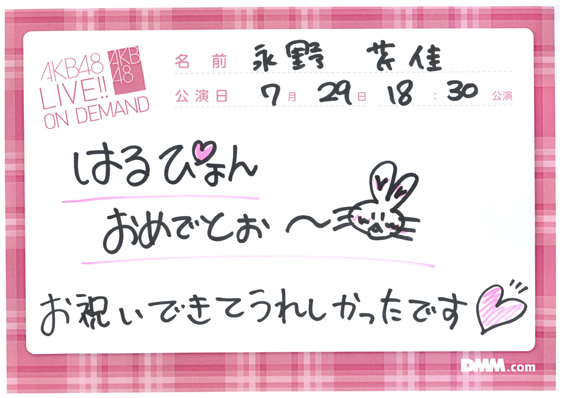 AKB48
LIVE!!
ON DEMAND
AKB
48
名前 永野 芹佳
公演日 7月 29日 18:30 公演
はるぴょん
おめでとお〜
お祝いできてうれしかったです
DMM.com